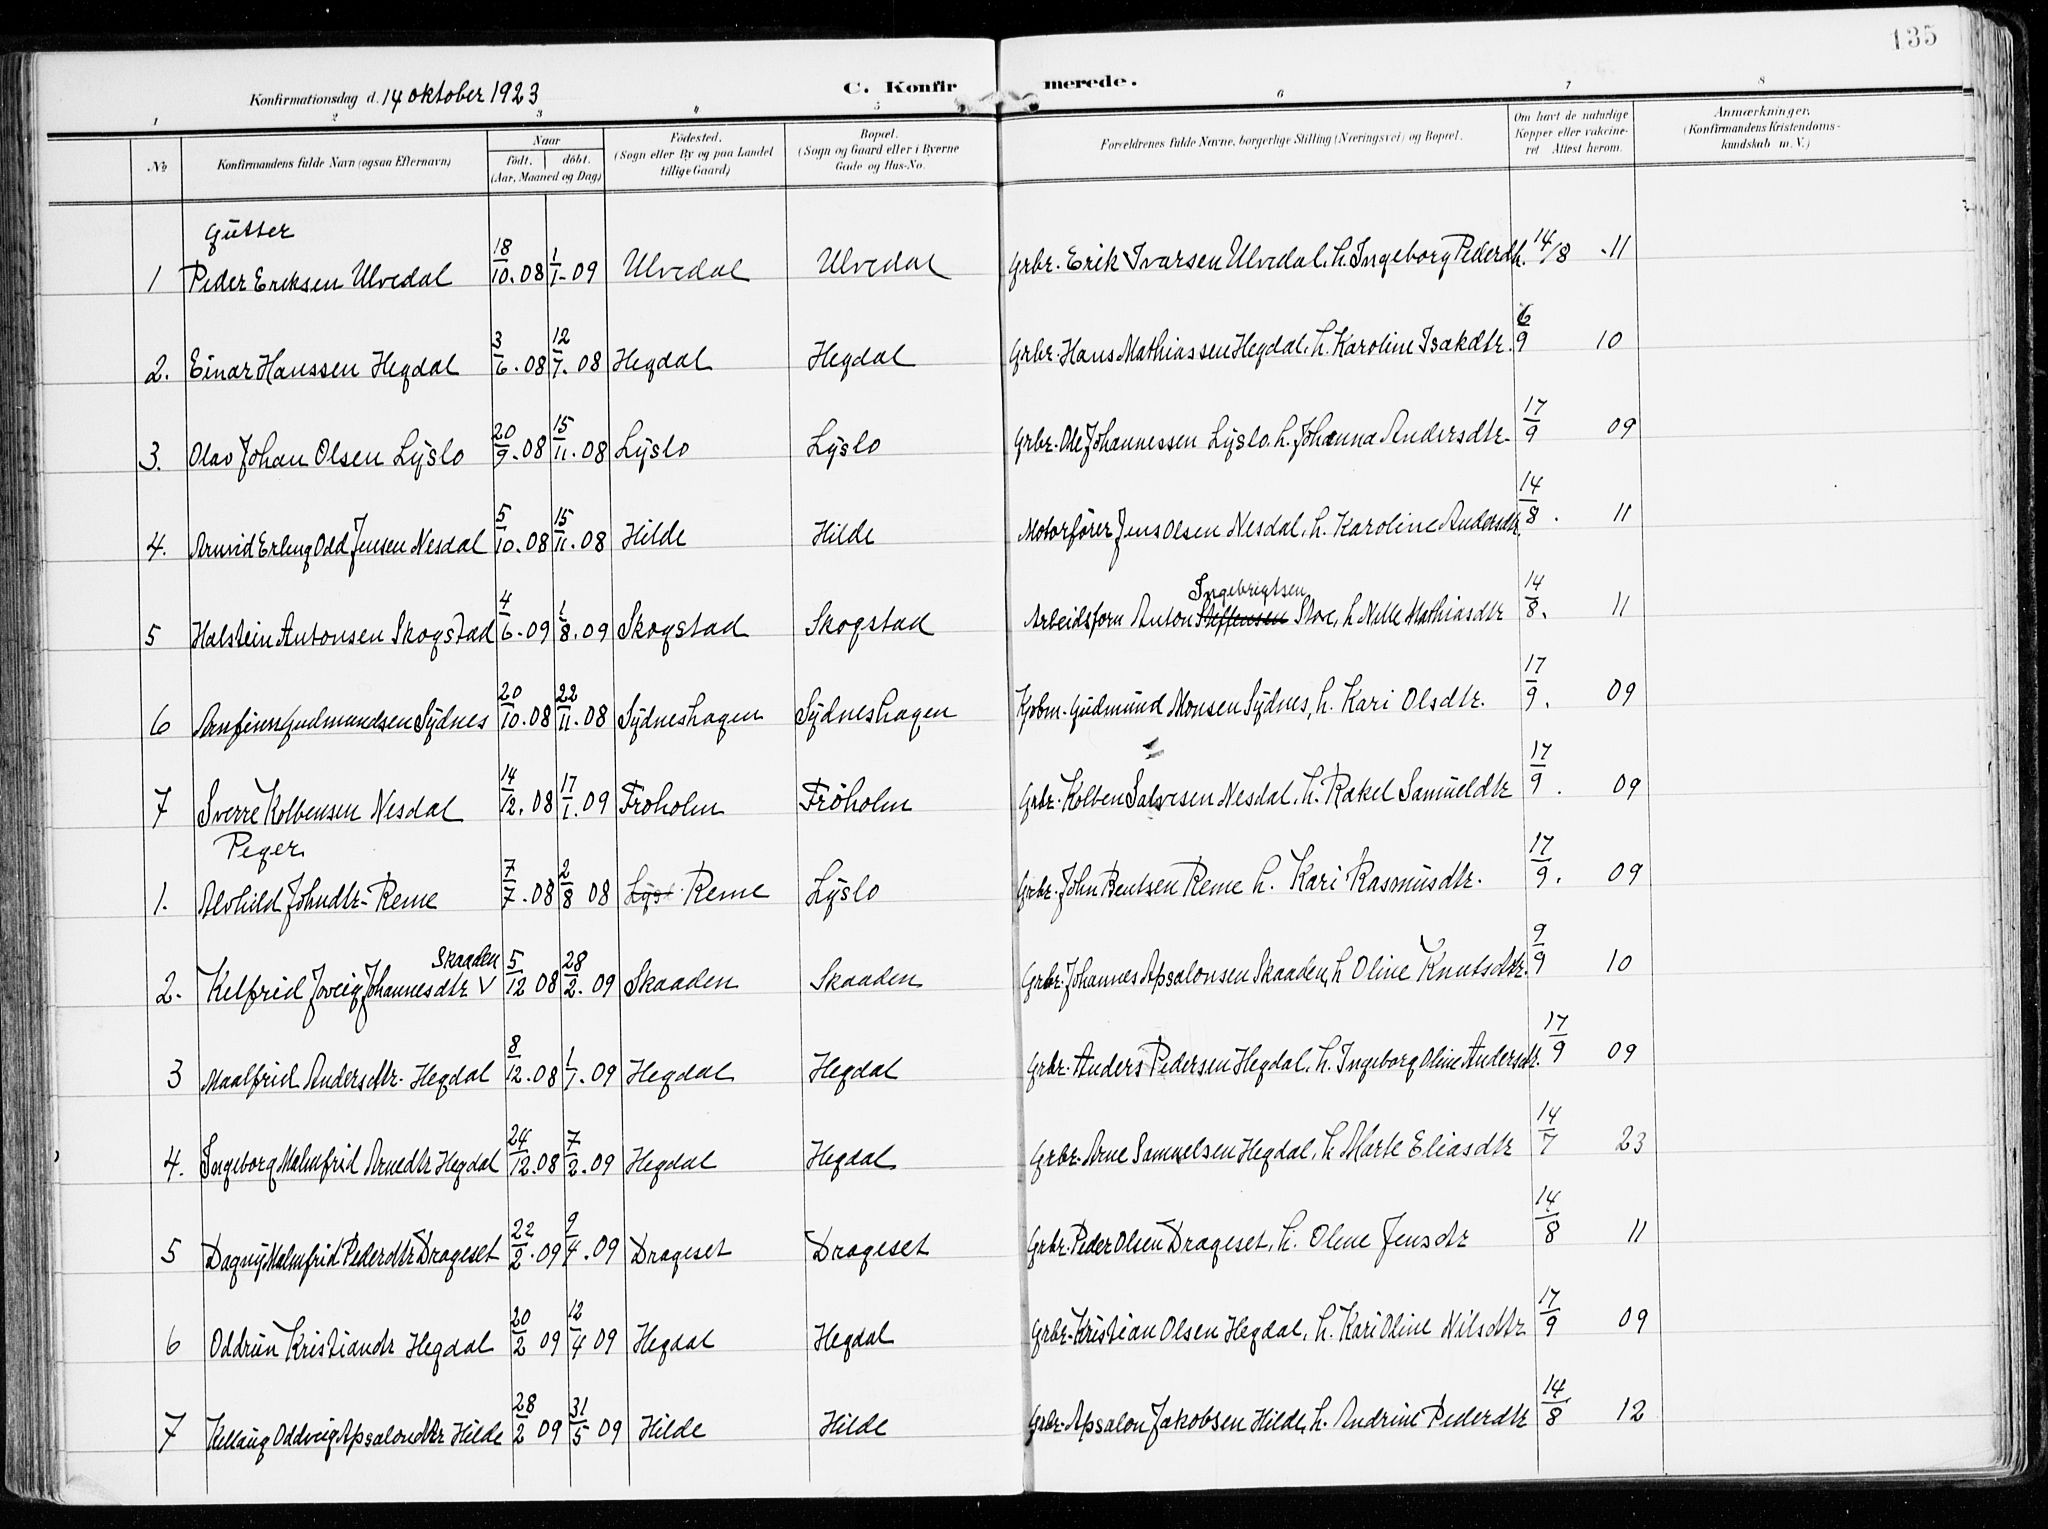 135
Konfirmationsdag d. 14 oktober 1923 C. Konfirmerede.
1 2 3 4 5 6 7 8
No Konfirmandens fulde Navn (ogsaa Efternavn) Naar født. døbt. (Aar, Maaned og Dag) Fødested. (Sogn eller By og paa Landet tillige Gaard) Bopæl. (Sogn og Gaard eller i Byerne Gade og Hus-No. Forældrenes fulde Navne, borgerlige Stilling (Næringsvei) og Bopæl. Om havt de naturlige Kopper eller vakcineret Attest herom. Anmærkninger. (Konfirmandens Kristendomskundskab m. V.)
Gutter
1 Peder Eriksen Ulvedal 18/10-08 1/1-09 Ulvedal Ulvedal Grbr. Erik Ivarsen Ulvedal, h. Ingeborg Pederdtr. 14/8 -11
2. Einar Hanssen Hegdal 3/6-08 12/7-08 Hegdal Hegdal Grbr. Hans Mathiassen Hegdal, h. Karoline Isakdtr. 6/9 10
3. Olav Johan Olsen Lyslo 20/9-08 15/11-08 Lyslo Lyslo Grbr. Ole Johannessen Lyslo. h. Johanna Andersdtr. 17/9 09
4. Arnvid Erling Odd Jensen Nesdal 5/10.08 15/11.08 Hilde Hilde Motorfører Jens Olsen Nesdal, h. Karoline Andersdtr. 14/8. 11
Ingebrigtsen
5 Halstein Antonsen Skogstad 4/6-09 1/8.09 Skogstad Skogstad Arbeidsform Anton Steffensen h Nelle Mathiasdtr 14/8. 11
6 Arnfinn Gudmundsen Sydnes 20/10.08 22/11.08 Sydneshagen Sydneshagen Kjøbm. Gudmund Monsen Sydnes, h. Kari Olsdtr. 17/9. 09
7 Sverre Kolbensen Nesdal 14/12.08 17/1.09 Frøholm Frøholm Grbr. Kolben Salvesen Nesdal, h. Rakel Samueldtr 17/9. 09
Peger
1. Alvhild Johndtr- Reme 7/7.08 2/8 08 Lysl. Reme Lyslo Grbr. John Bentsen Reme h. Kari Rasmusdtr. 17/9. 09
Skaaden
2. Kelfrid Joveig Johannesdtr V 5/12 08 28/2.09 Skaaden Skaaden Grbr. Johannes Apsalonsen Skaaden, h Oline Knutsdtr. 9/9 10
3 Maalfrid Andersdtr. Hegdal 8/12.08 1/1.09 Hegdal Hegdal Grbr. Anders Pedersen Hegdal, h. Ingeborg Oline Andersdtr. 17/9 09
4. Ingeborg Malmfrid Arnedtr Hegdal 24/12.08 7/2.09 Hegdal Hegdal Grbr. Arne Samuelsen Hegdal, h Marte Eliasdtr 14/7 23
5 Dagny Malmfrid Pederdtr Drageset 22/2.09 9/4.09 Drageset Drageset Grbr. Peder Olsen Drageset, h. Oline Jensdtr 14/8 11
6 Oddrun Kristiandtr Hegdal 20/2 09 12/4 09 Hegdal Hegdal Grbr. Kristian Olsen Hegdal, h. Kari Oline Nilsdtr 17/9 09
7 Kellaug Oddveig Apsalondtr Hilde 28/2 09 31/5 09 Hilde Hilde Grbr. Apsalon Jakobsen Hilde, h. Andrine Pederdtr 14/8 12